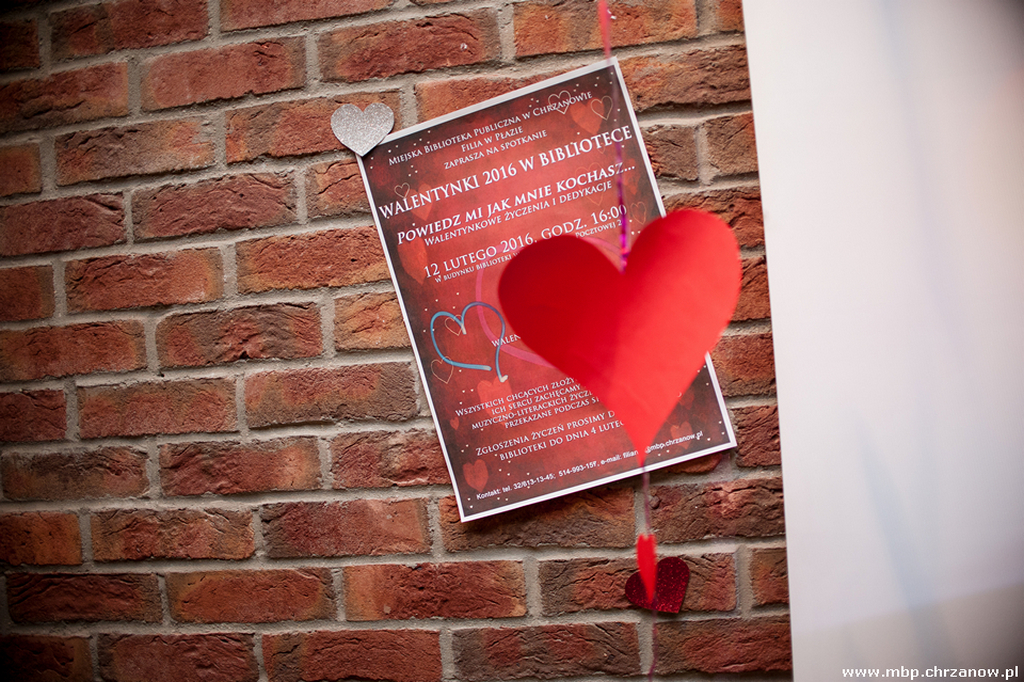 Miejska Biblioteka Publiczna w Chrzanowie
Filia w Płazie
zaprasza na spotkanie
Walentynki 2016 w bibliotece
Powiedz mi jak mnie kochasz...
Walentynkowe życzenia i dedykacje
12 lutego 2016, godz. 16:00
w budynku biblioteki Pocztowej
Wszystkich chcących
ich sercu zachęcamy
muzyczno-literackich
przekazane podczas
Zgłoszenia życzeń prosimy
biblioteki do dnia 4
Kontakt: tel. 32/613-13-45; 514-993-15 , e-mail: @mbp.chrzanow.pl
www.mbp.chrzanow.pl